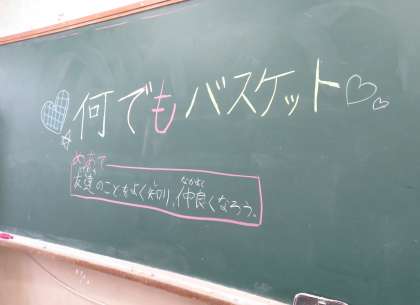 何でもバスケット
めあて
友達のことをよく知り、仲良くなろう。